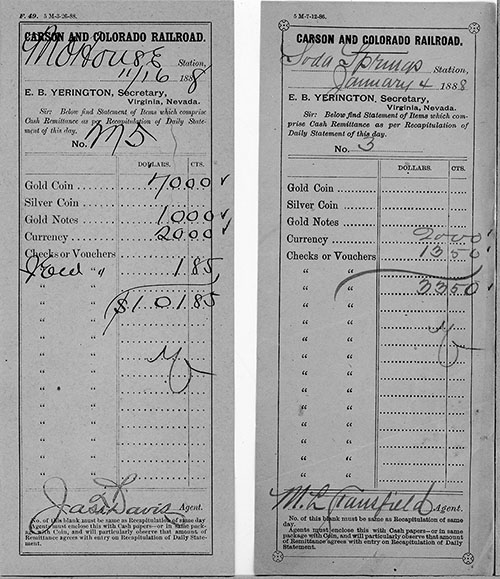 F. 49. 5 M-3-26-88.
CARSON AND COLORADO RAILROAD.
Mo House Station,
11/16 1888
E. B. YERINGTON, Secretary,
Virginia, Nevada.
Sir: Below find Statement of Items which comprise
Cash Remittance as per Recapitulation of Daily State-
ment of this day.
No.
DOLLARS. CTS.
Gold Coin 70 00
Silver Coin
Gold Notes 10 00
Currency 20 00
Checks or Vouchers
" 1 85
" $101 85
"
"
"
"
"
"
"
"
"
Jas. Davis Agent.
No. of this blank must be same as Recapitulation of same day
Agents must enclose this with Cash papers—or in same pack-
age with Coin, and will particularly observe that amount of
Remittance agrees with entry on Recapitulation of Daily State-
ment.
5 M-7-12-86.
CARSON AND COLORADO RAILROAD.
Soda Springs Station,
January 4 1888
E. B. YERINGTON, Secretary,
Virginia, Nevada.
Sir: Below find Statement of Items which com-
prise Cash Remittance as per Recapitulation of
Daily Statement of this day.
No. 3
DOLLARS. CTS.
Gold Coin
Silver Coin
Gold Notes
Currency 20 00
Checks or Vouchers 13 50
" "
" " 33 50
" "
" "
" "
" "
" "
" "
" "
" "
" "
" "
M. L. Agent.
No. of this blank must be same as Recapitulation of same
day.
Agents must enclose this with Cash papers—or in same
package with Coin, and will particularly observe that amount
of Remittance agrees with entry on Recapitulation of Daily
Statement.